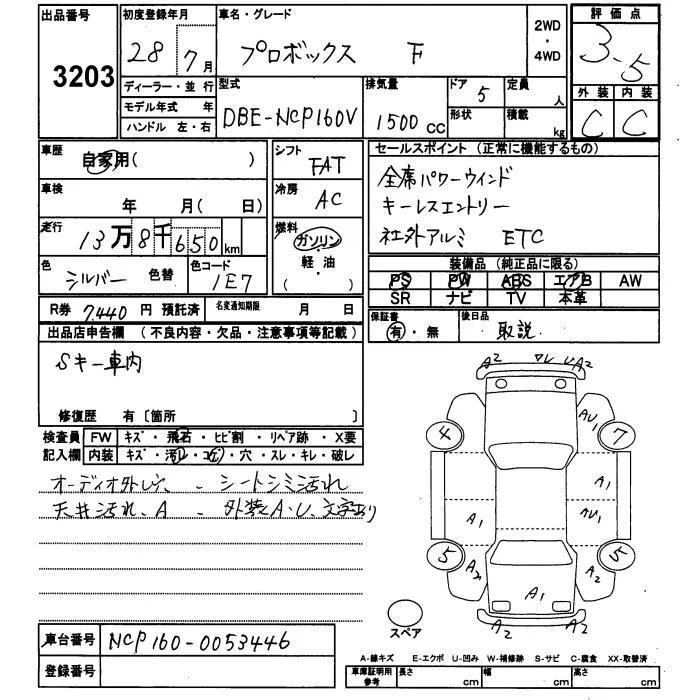 出品番号 3203
初度登録年月 28年 7月
車名・グレード プロボックス F
2WD・4WD
評価点 3.5
外装 C 内装 C
ディーラー・並行
モデル年式 年
ハンドル 左・右
型式 DBE-NCP160V
排気量 1500 cc
ドア 5
形状
定員 人
積載 kg
車歴 自家用( )
シフト FAT
セールスポイント (正常に機能するもの)
全席パワーウインド
キーレスエントリー
社外アルミ ETC
車検 年 月( 日)
冷房 AC
走行 13万8千650km
燃料 ガソリン・軽・油 ( )
色 シルバー 色替
色コード 1E7
装備品 (純正品に限る)
PS PW ABS エアB AW
SR ナビ TV 本革
R券 7,440 円 預託済
名変通知期限 月 日
保証書 有・無
後日品 取説
出品店申告欄 (不良内容・欠品・注意事項等記載)
Sキー車内
修復歴 有〔箇所
検査員記入欄
FW キズ・飛石・ヒビ割・リペア跡・X要
内装 キズ・汚レ・コゲ・穴・スレ・キレ・破レ
オーディオ外レ - シートシミ汚れ
天井汚れ、A - 外装A・U、文字あり
A2 A2
4 AU1 7
A1
A1 AU1
5 A2 A1 A2 5
A2 A2
スペア
車台番号 NCP160-0053446
登録番号
A-線キズ E-エクボ U-凹み W-補修跡 S-サビ C-腐食 XX-取替済
車庫証明用参考 長さ cm 幅 cm 高さ cm